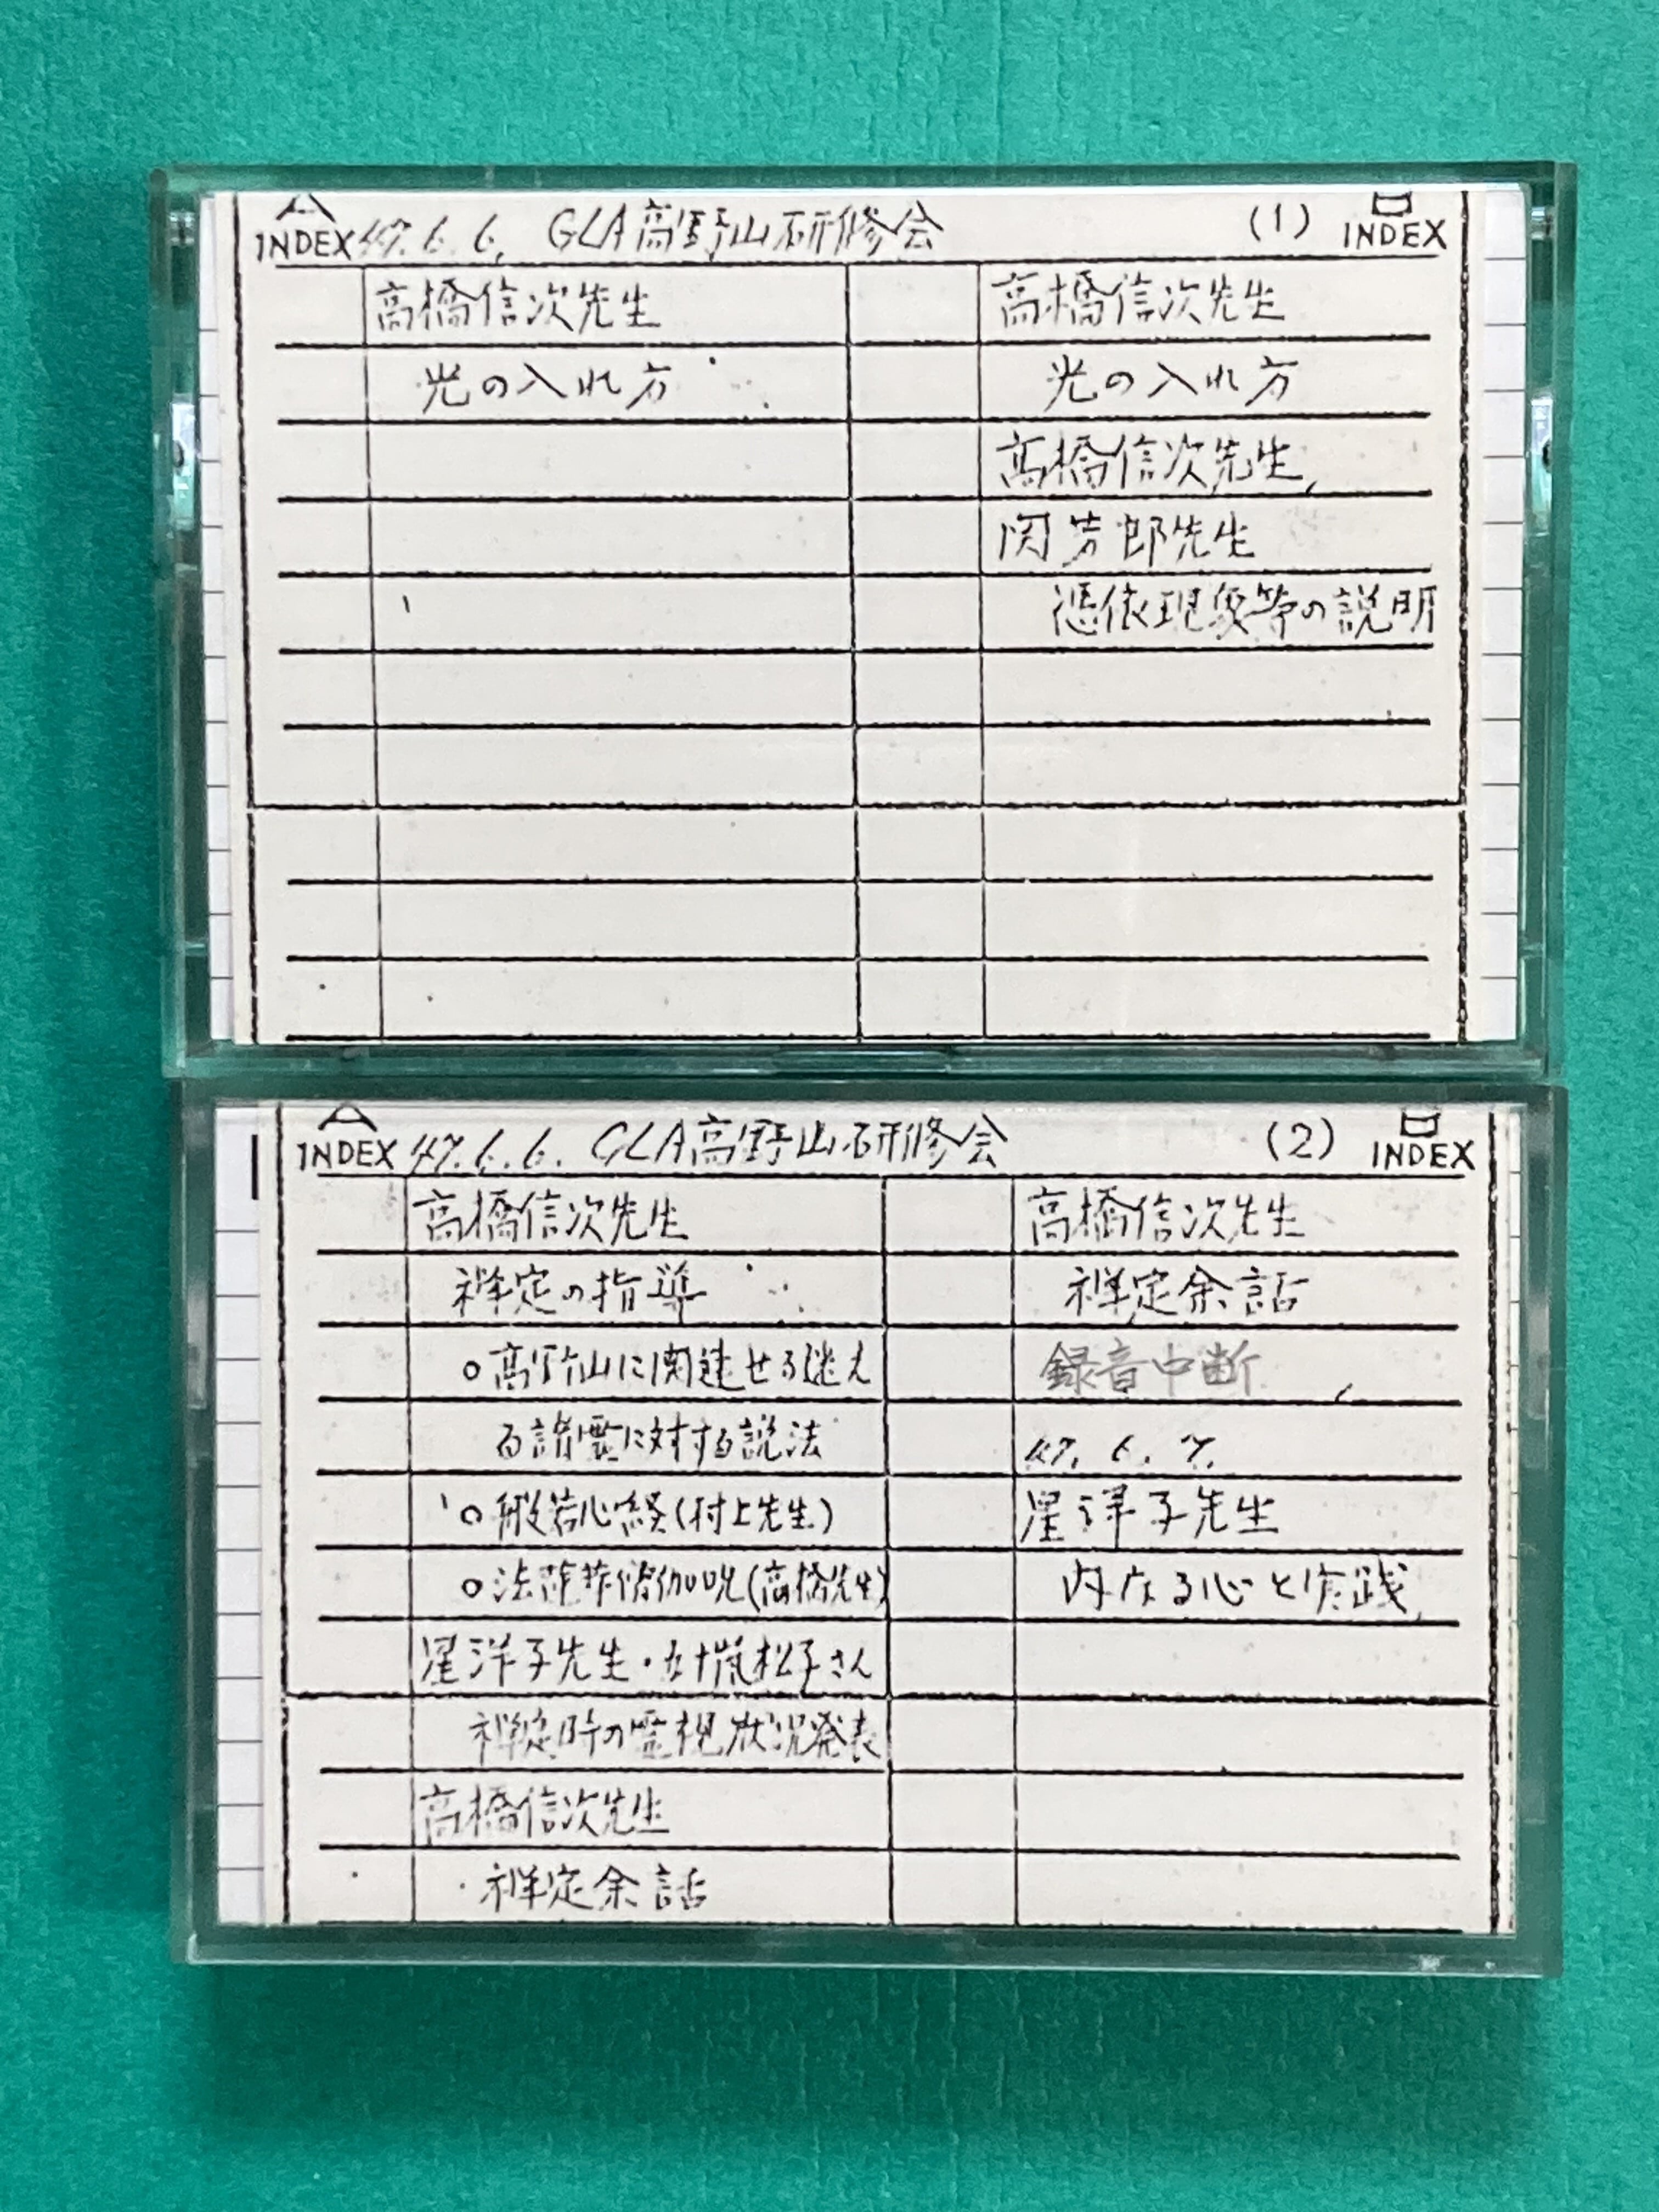 A INDEX 47.6.6. GLA高野山研修会 (1) B INDEX
高橋信次先生
光の入れ方
高橋信次先生
光の入れ方
高橋信次先生,
関芳郎先生
憑依現象等の説明
A INDEX 47.6.6. GLA高野山研修会 (2) B INDEX
高橋信次先生
禅定の指導
○高野山に関連せる迷え
る諸霊に対する説法
○般若心経(村上先生)
○法華(高橋先生)
星洋子先生・五十嵐松子さん
禅定時の霊視状況発表
高橋信次先生
・禅定余話
高橋信次先生
禅定余話
録音中断
47. 6. 7.
星洋子先生
内なる心と実践